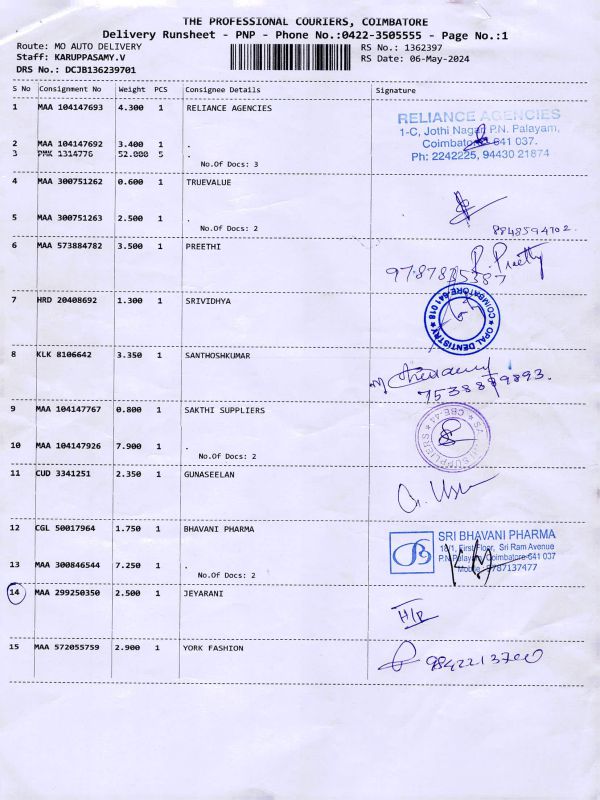 THE PROFESSIONAL COURIERS, COIMBATORE
Delivery Runsheet - PNP - Phone No.:0422-3505555 - Page No.:1
Route: MO AUTO DELIVERY
RS No.: 1362397
Staff: KARUPPASAMY.V
RS Date: 06-May-2024
DRS No.: DCJB136239701
S No Consignment No Weight PCS Consignee Details Signature
1 MAA 104147693 4.300 1 RELIANCE AGENCIES
RELIANCE AGENCIES
1-C, Jothi Nagar P.N. Palayam,
Coimbatore 641 037.
Ph: 2242225, 94430 21874
2 MAA 104147692 3.400 1 .
3 PMX 1314776 52.000 5 .
No.Of Docs: 3
4 MAA 300751262 0.600 1 TRUEVALUE
5 MAA 300751263 2.500 1 .
No.Of Docs: 2
8848594702.
6 MAA 573884782 3.500 1 PREETHI
P. Preethy
7 HRD 20408692 1.300 1 SRIVIDHYA
OPAL DENTISTRY ★ COIMBATORE-641 018 ★
8 KLK 8106642 3.350 1 SANTHOSHKUMAR
9 MAA 104147767 0.800 1 SAKTHI SUPPLIERS
10 MAA 104147926 7.900 1 .
No.Of Docs: 2
11 CUD 3341251 2.350 1 GUNASEELAN
12 CGL 50017964 1.750 1 BHAVANI PHARMA
SRI BHAVANI PHARMA
18/1, First Floor, Sri Ram Avenue
P.N.Palayam, Coimbatore-641 037
Mobile: 9787137477
13 MAA 300846544 7.250 1 .
No.Of Docs: 2
14 MAA 299250351 2.500 1 JEYARANI
H/R
15 MAA 572055759 2.900 1 YORK FASHION
9842213700